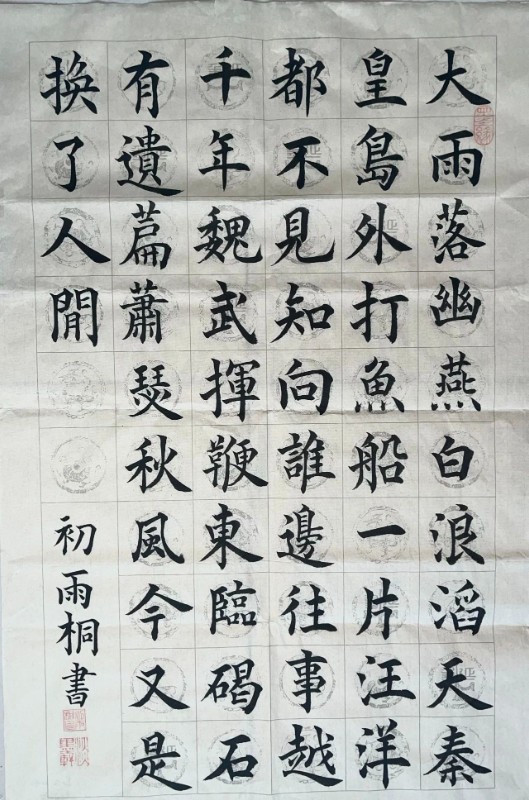 大雨落幽燕白浪滔天秦
皇島外打魚船一片汪洋
都不見知向誰邊往事越
千年魏武揮鞭東臨碣石
有遺篇蕭瑟秋風今又是
換了人間
初雨桐書